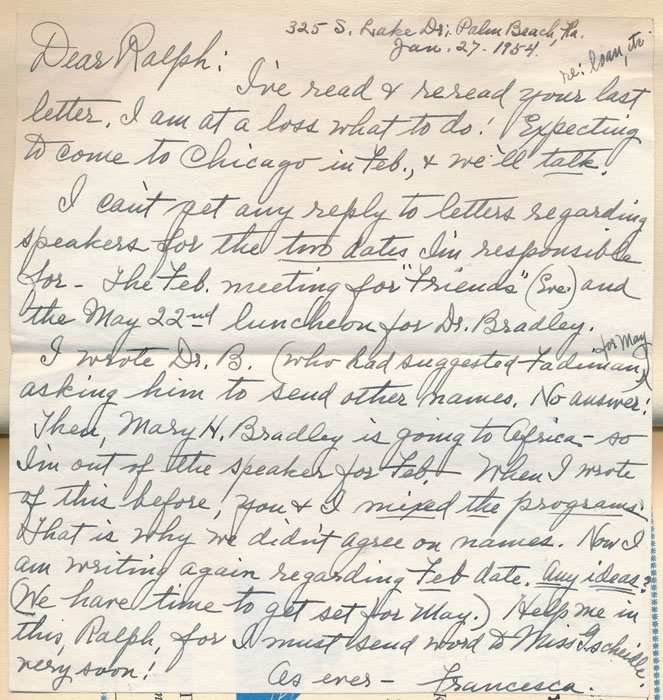 325 S. Lake Dr; Palm Beach, Fla.
Jan. 27-1954.
re: loan, etc.
Dear Ralph:
I've read & reread your last
letter. I am at a loss what to do! Expecting
to come to Chicago in Feb., & we'll talk.
I can't get any reply to letters regarding
speakers for the two dates I'm responsible
for - The Feb. meeting for "Friends" (Eve.) and
the May 22nd luncheon for Dr. Bradley.
I wrote Dr. B. (who had suggested Fadiman for May)
asking him to send other names. No answer!
Then, Mary H. Bradley is going to Africa - so
I'm out of the speaker for Feb. - When I wrote
of this before, you & I mixed the programs.
That is why we didn't agree on names. Now I
am writing again regarding Feb date. Any ideas?
(We have time to get set for May.) Help me in
this, Ralph, for I must send word to Miss
very soon!
As ever - Francesca.